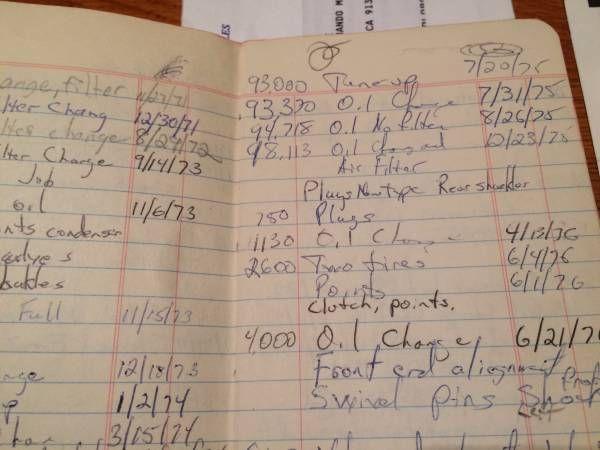 ANDO M
CA 913
ange, filter 11/27/71
lter Chang 12/30/71
lter change 8/24/72
lter Charge 9/14/73
Job
oil 11/6/73
nts condenser
Full 11/15/73
nge 12/18/73
p 1/2/74
3/15/74
7/20/75
93000 Tune up
93,370 O.l Change 7/31/75
94,718 O.l No filter 8/26/75
98,113 O.l Changed 10/23/75
Air Filter
Plugs New type Rear shackler
750 Plugs
1130 O.l Change 4/13/76
2600 Two tires 6/4/76
Points 6/1/76
Clutch, points.
4,000 O.l Change, 6/21/7
Front end alignment
Swivel pins
Left